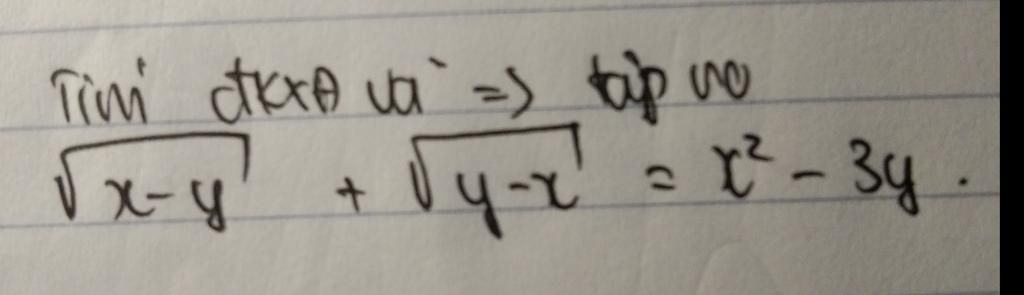 Tìm đkxđ và => tập no
√(x-y) + √(y-x) = x² - 3y.